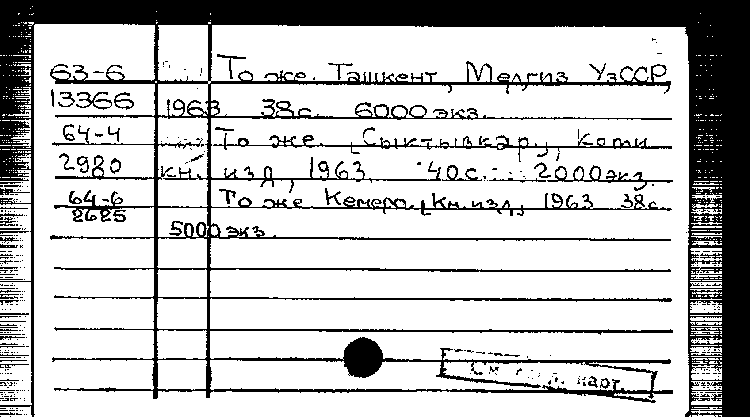 63-6 То же. Ташкент, Медгиз УзССР,
13366 1963 38с. 6000 экз.
64-4 То же. [Сыктывкар], Коми
2980 кн. изд, 1963. 40с. 2000экз.
64-6 То же Кемеро. [Кн.изд] 1963 38с.
2625 5000 экз.
См. карт.